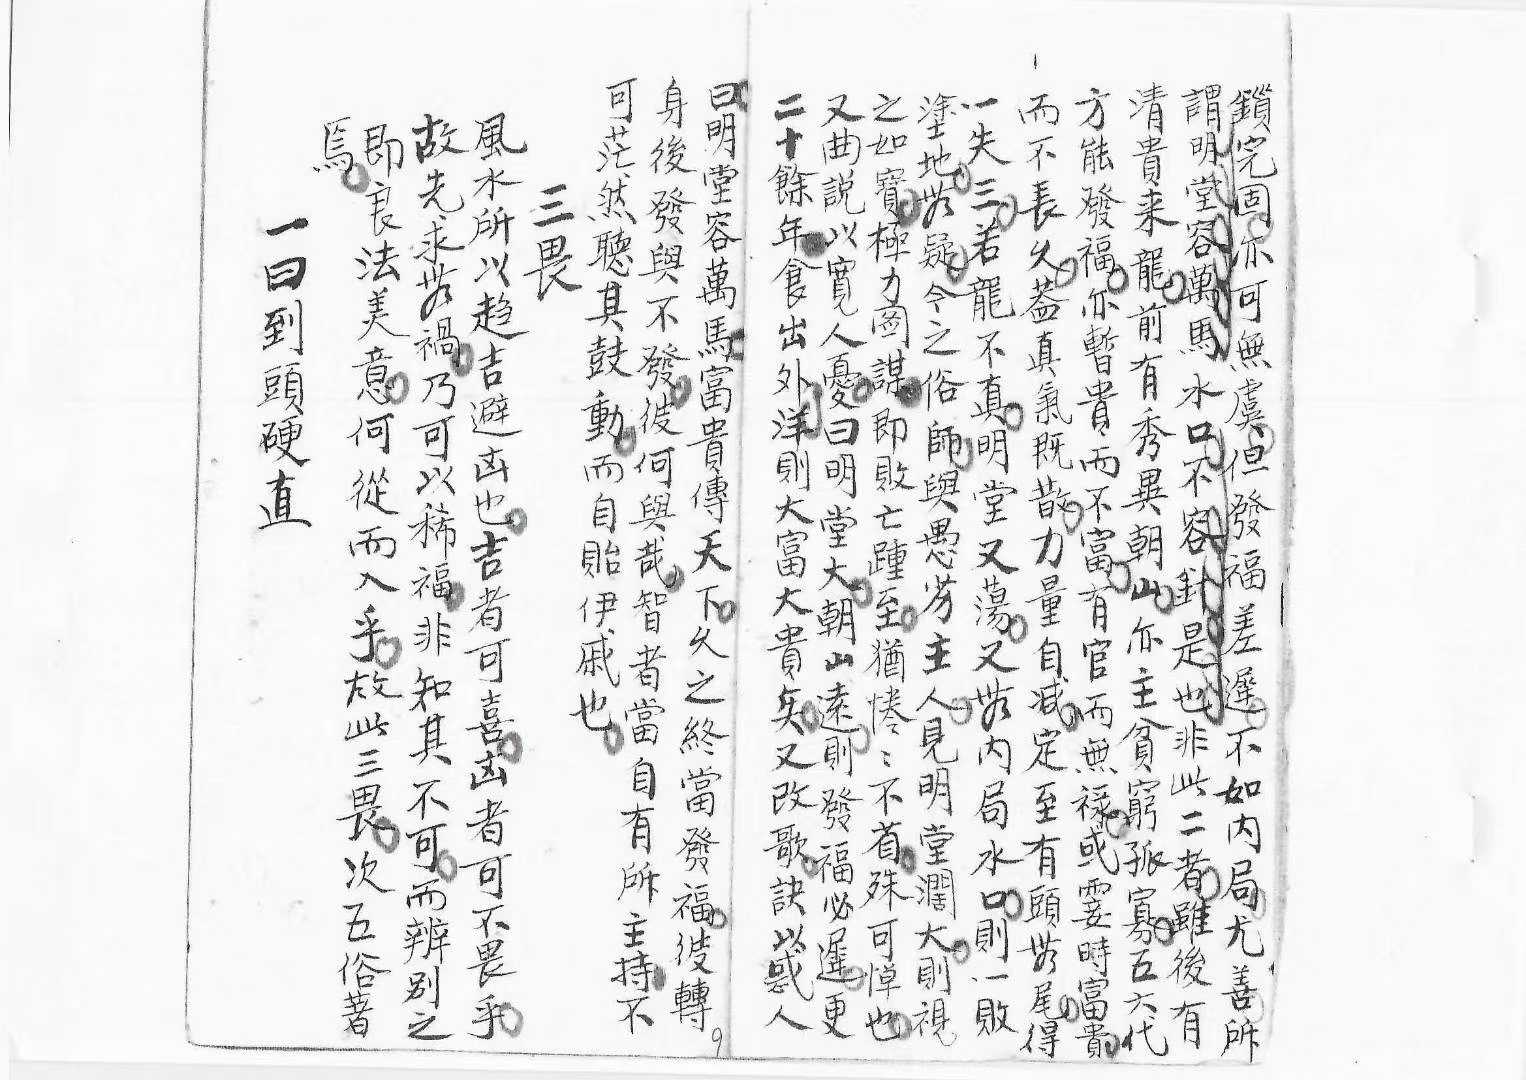 鎖完固亦可無虞但發福差遲不如內局尤善所
謂明堂容萬馬水口不容針是也非此二者雖後有
清貴来龍前有秀異朝山亦主貧窮孤寡五六代
方能發福亦暫貴而不富有官而無祿或霎時富貴
而不長久葢真氣既散力量自减定至有頭无尾得
一失三若龍不真明堂又蕩又无內局水口則一敗
塗地无疑今之俗師與愚劣主人見明堂濶大則視
之如寶極力圖謀即敗亡踵至猶惓〻不省殊可悼也
又曲説以寛人憂曰明堂大朝山遠則發福必遲更
二十餘年食出外洋則大富大貴矣又改歌訣以惑人
曰明堂容萬馬富貴傳天下久之終當發福彼轉
身後發與不發彼何與哉智者當自有所主持不
可茫然聽其鼓動而自貽伊戚也
三畏
風水所以趋吉避凶也吉者可喜凶者可不畏乎
故先求无禍乃可以稀福非知其不可而辨别之
即良法美意何從而入乎故此三畏次五俗著
焉
一曰到頭硬直
9